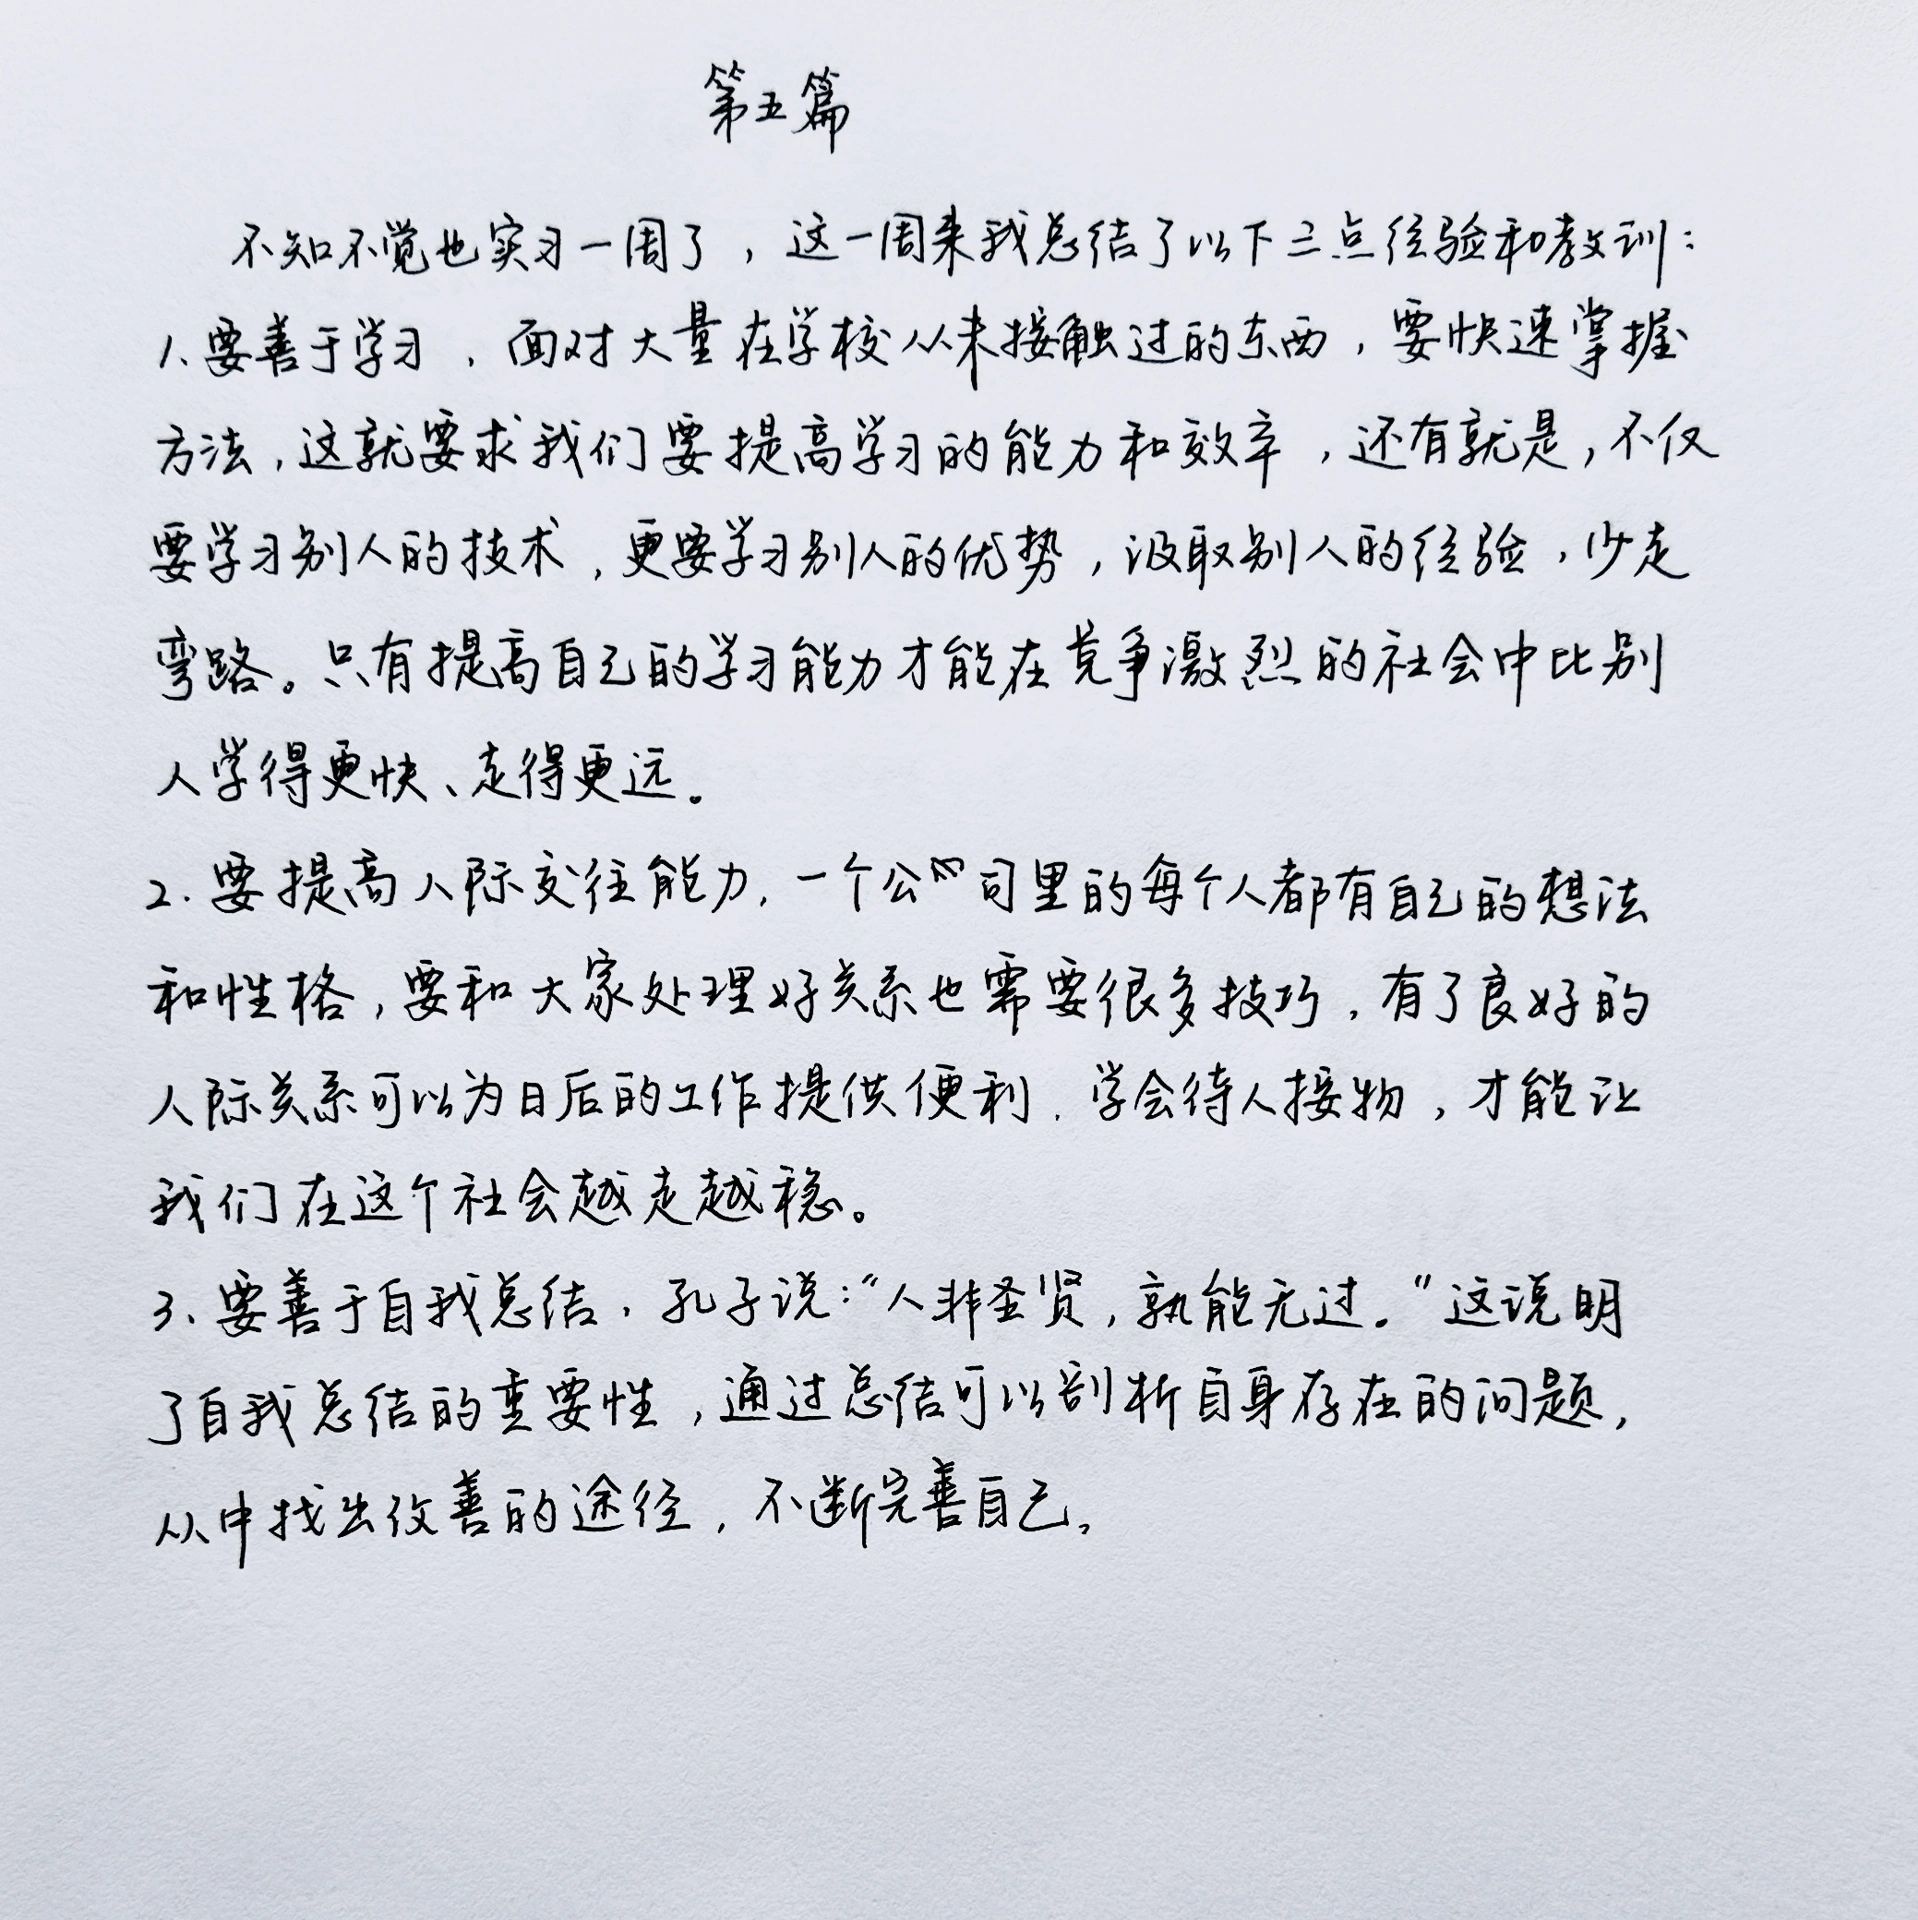 第五篇
不知不觉也实习一周了，这一周来我总结了以下三点经验和教训：
1、要善于学习，面对大量在学校从未接触过的东西，要快速掌握
方法，这就要求我们要提高学习的能力和效率，还有就是，不仅
要学习别人的技术，更要学习别人的优势，汲取别人的经验，少走
弯路。只有提高自己的学习能力才能在竞争激烈的社会中比别
人学得更快、走得更远。
2.要提高人际交往能力，一个公司里的每个人都有自己的想法
和性格，要和大家处理好关系也需要很多技巧，有了良好的
人际关系可以为日后的工作提供便利．学会待人接物，才能让
我们在这个社会越走越稳。
3、要善于自我总结，孔子说：“人非圣贤，孰能无过。”这说明
了自我总结的重要性，通过总结可以剖析自身存在的问题，
从中找出改善的途径，不断完善自己。